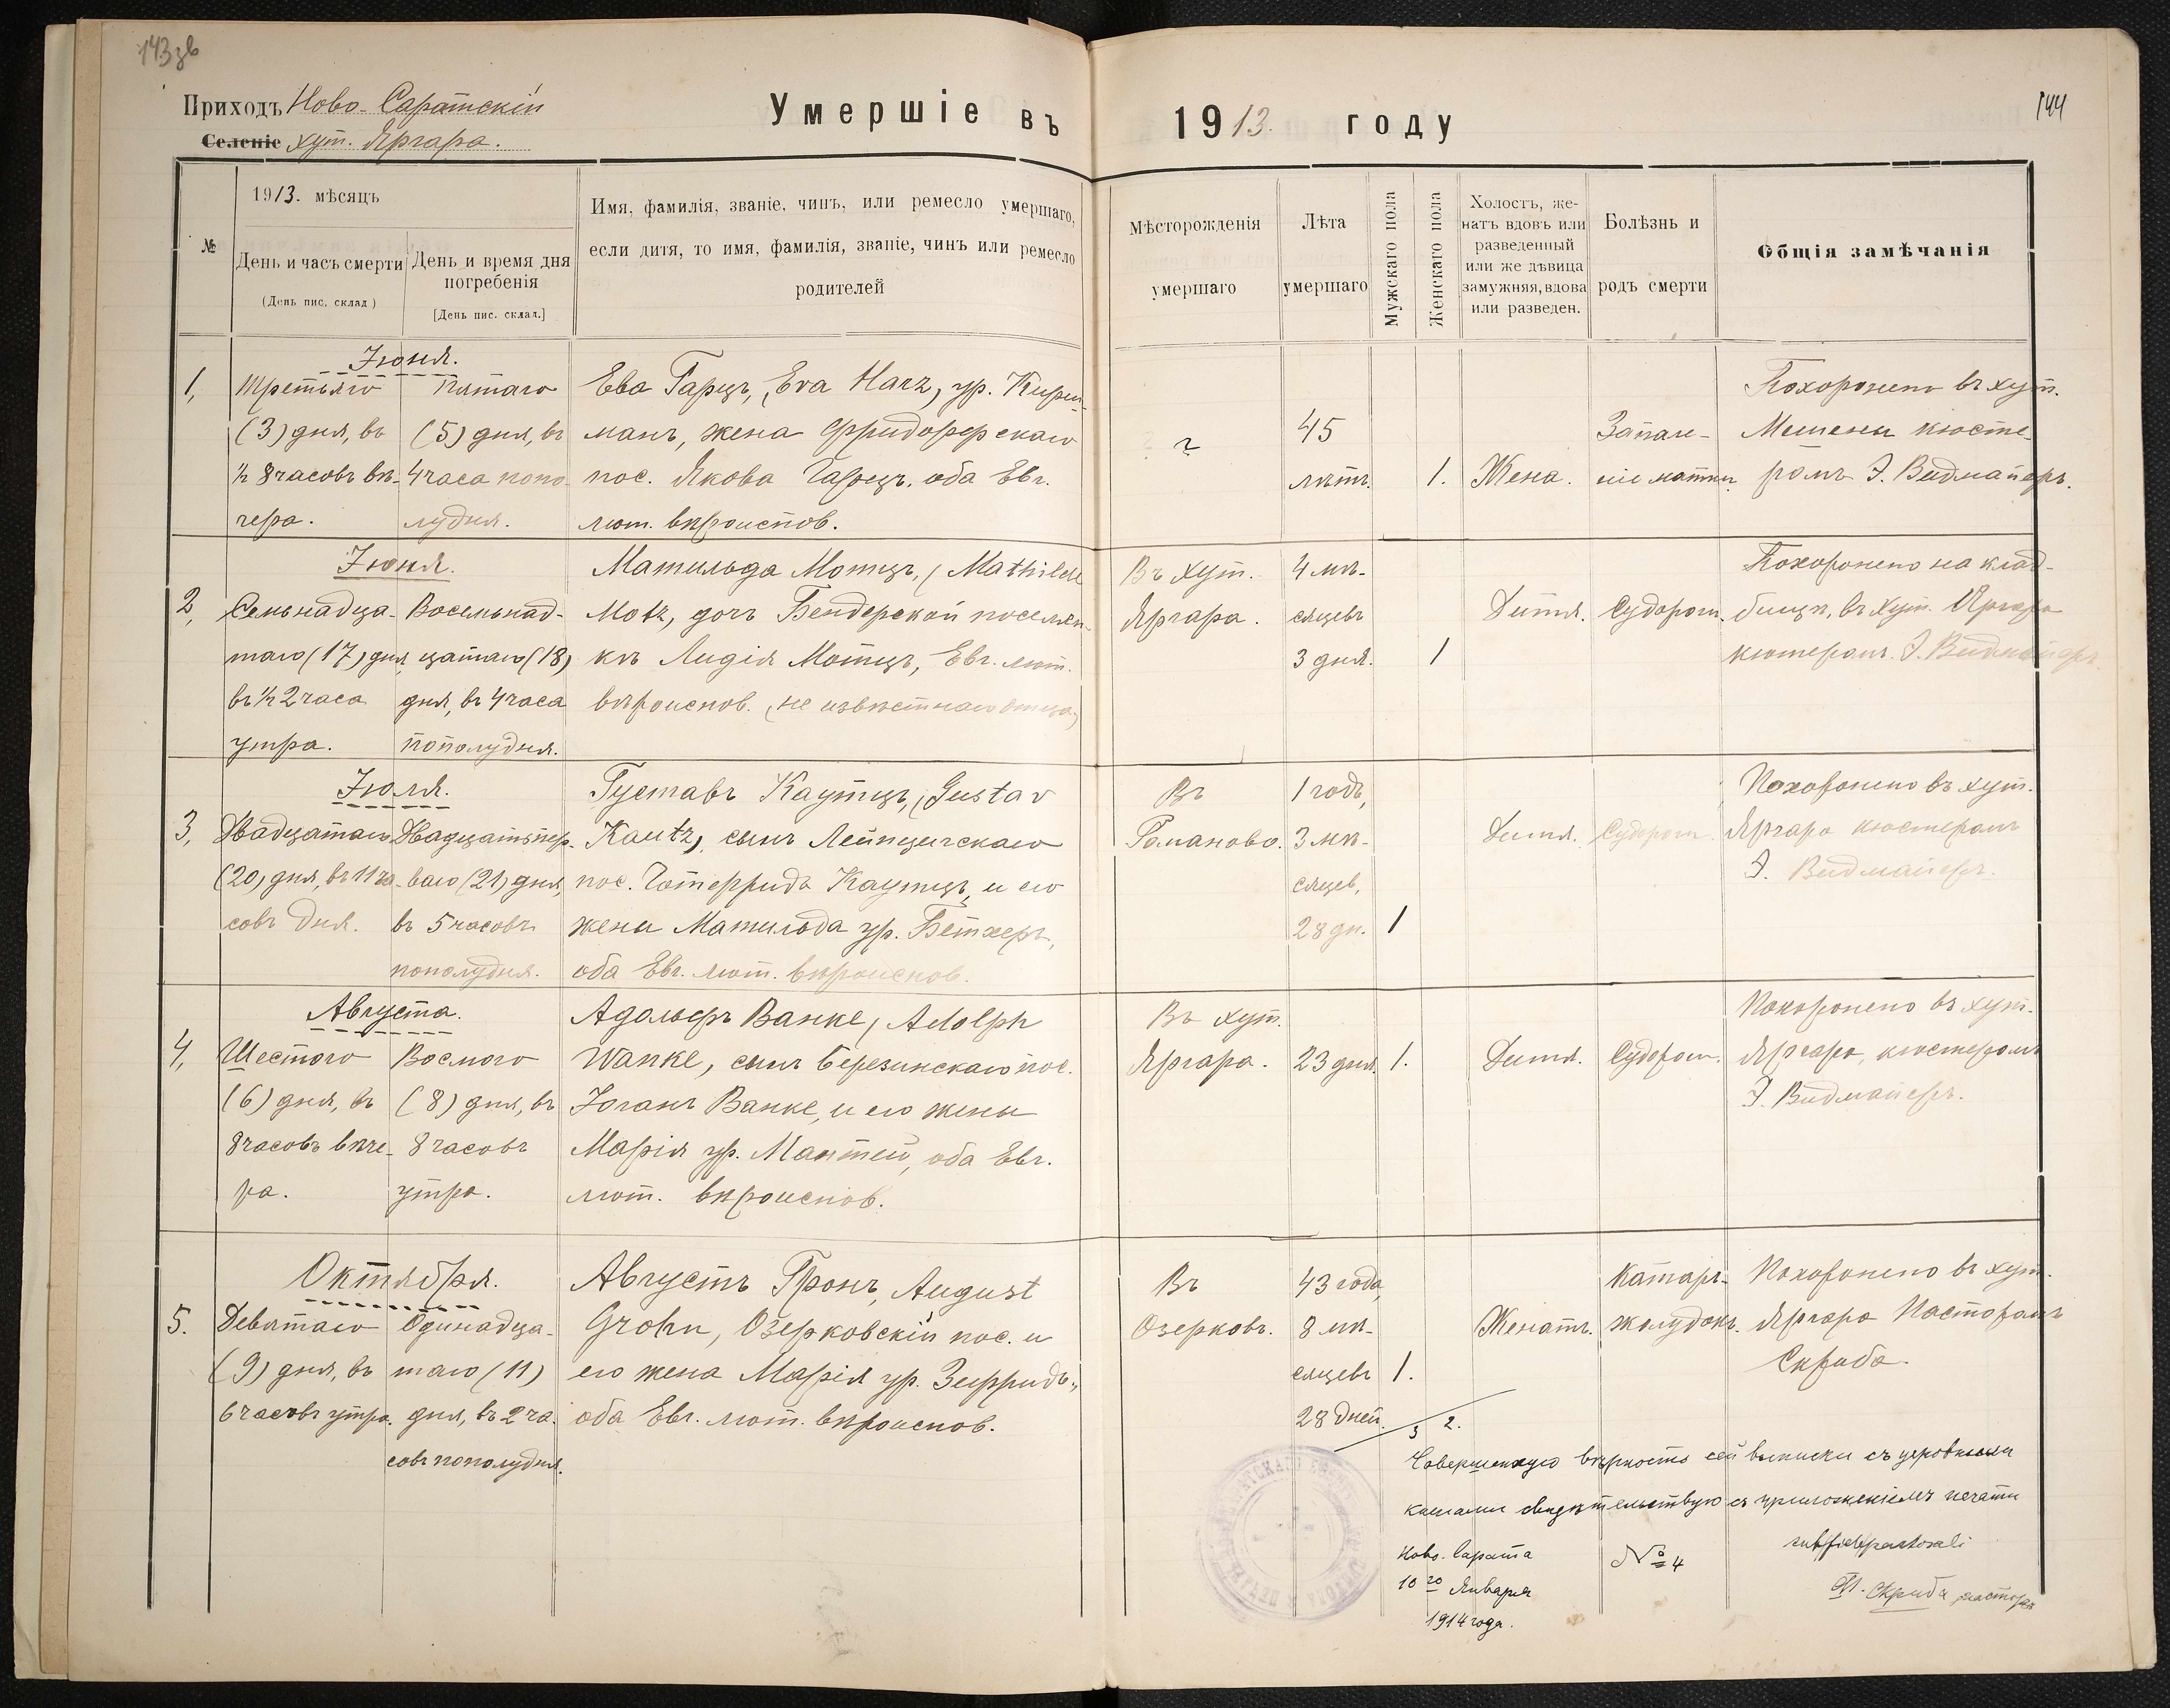 143зв
144
Приходъ Ново-Саратскій
Селеніе хут. Яргара.
Умершіе въ 1913. году
№
1913. мѣсяцъ
День и часъ смерти
(День пис. склад)
День и время дня
погребенія
[День пис. склад.]
Имя, фамилія, званіе, чинъ, или ремесло умершаго,
если дитя, то имя, фамилія, званіе, чинъ или ремесло
родителей
Мѣсторожденія
умершаго
Лѣта
умершаго
Мужскаго пола
Женскаго пола
Холостъ, же-
натъ вдовъ или
разведенный
или же дѣвица
замужняя, вдова
или разведен.
Болѣзнь и
родъ смерти
Общія замѣчанія
1,
Іюня.
Третьяго
(3) дня, въ
½ 8 часовъ ве-
чера.
Пятаго
(5) дня, въ
4 часа попо-
лудня.
Ева Гарцъ, (Eva Harz, ур. Кирш-
манъ, жена Фридофскаго
пос. Якова Гарцъ, оба Евг.
лют. вѣроиспов.
?
45
лѣтъ.
1.
Жена.
Запале-
ніе матки.
Похоронено въ хут.
Мешены кюсте-
ромъ І. Видмайеръ.
2,
Іюня.
Семьнадца-
таго (17) дня,
въ ½ 2 часа
утра.
Восемьнад-
цатаго (18)
дня, въ 4 часа
пополудня.
Матильда Мотцъ, (Mathilde
Motz, дочь Бендерской поселян-
кѣ Лидія Мотцъ, Евг. лют.
вѣроиспов. (не извѣстнаго отца)
Въ хут.
Яргара.
4 мѣ-
сяцевъ
3 дня.
1
Дитя.
Судорош.
Похоронено на клад-
бищѣ, въ хут. Яргара
кюстеромъ І. Видмайеръ.
3,
Іюля.
Двадцатаго
(20) дня, въ 11 ча-
совъ дня.
Двадцатьпер-
ваго (21) дня,
въ 5 часовъ
пополудня.
Густавъ Каутцъ, (Gustav
Kautz), сынъ Лейпцигскаго
пос. Готфридъ Каутцъ, и его
жена Матильда ур. Бетхеръ,
оба Евг. лют. вѣроиспов.
Въ
Романово.
1 годъ,
3 мѣ-
сяцев,
28 дн.
1
Дитя.
Судорош.
Похоронено въ хут.
Яргара кюстеромъ
І. Видмайеръ.
4,
Августа.
Шестого
(6) дня, въ
8 часовъ вече-
ра.
Восмого
(8) дня, въ
8 часовъ
утра.
Адольфъ Ванке, (Adolph
Wanke, сынъ Березинскаго пос.
Іоганъ Ванке, и его жены
Марія ур. Мантей, оба Евг.
лют. вѣроиспов.
Въ хут.
Яргара.
23 дня.
1.
Дитя.
Судорош.
Похоронено въ хут.
Яргара, кюстеромъ
І. Видмайеръ.
5.
Октября.
Девятаго
(9) дня, въ
6 часовъ утра.
Одинадца-
таго (11)
дня, въ 2 ча-
совъ пополудня.
Августъ Гронъ, August
Grohn, Озерковскій пос. и
его жена Марія ур. Зефридъ,
оба Евг. лют. вѣроиспов.
Въ
Озерковъ.
43 года,
8 мѣ-
сяцевъ
28 дней.
1.
Женатъ.
Катаръ-
желудокъ.
Похоронено въ хут.
Яргара Пасторомъ
Скриба.
3 2.
Совершенную вѣрность сей выписки съ церковными
книгами свидѣтельствую съ приложеніемъ печати
Ново-Сарата
10го Января
1914 года.
№ 4
sub fide pastorali
Скриба пасторъ